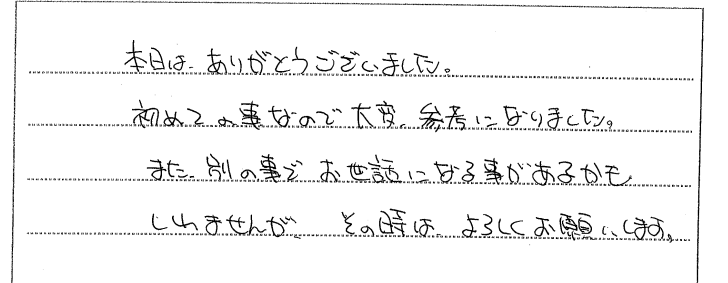 本日は、ありがとうございました。
初めての事なので大変、参考になりました。
また、別の事でお世話になる事があるかも
しれませんが、その時は、よろしくお願いします。